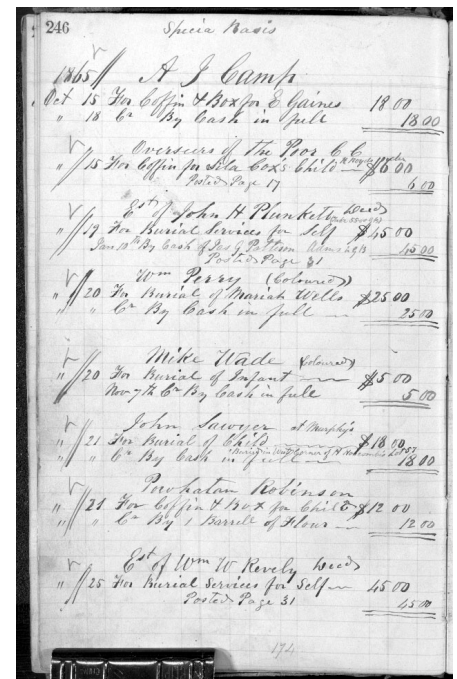 246 Specia Basis
1865 A J Camp
Oct 15 For Coffin & Box for E Gaines 18 00
" 18 Cr By Cash in full 18 00
Overseers of the Poor C C
" 15 For Coffin for Sila Cox's Child $6 00
Posted Page 17 6 00
Est of John H Plunkett Decd
" 19 For Burial Services for Self $45 00
Jan 10th By Cash of Jas G Patteson 45 00
Posted Page 31
Wm Perry (Coloured)
" 20 For Burial of Mariah Wells $25 00
" " Cr By Cash in full 25 00
Mike Wade (Coloured)
" 20 For Burial of Infant $5 00
Nov 7th Cr By Cash in full 5 00
John Sawyer at Murphy's
" 21 For Burial of Child $18 00
" " Cr By Cash in full 18 00
Powhatan Robinson
" 21 For Coffin & Box for Child $12 00
" " Cr By 1 Barrell of Flour 12 00
Est of Wm W Revely Decd
" 25 For Burial Services for Self 45 00
Posted Page 31 45 00
174